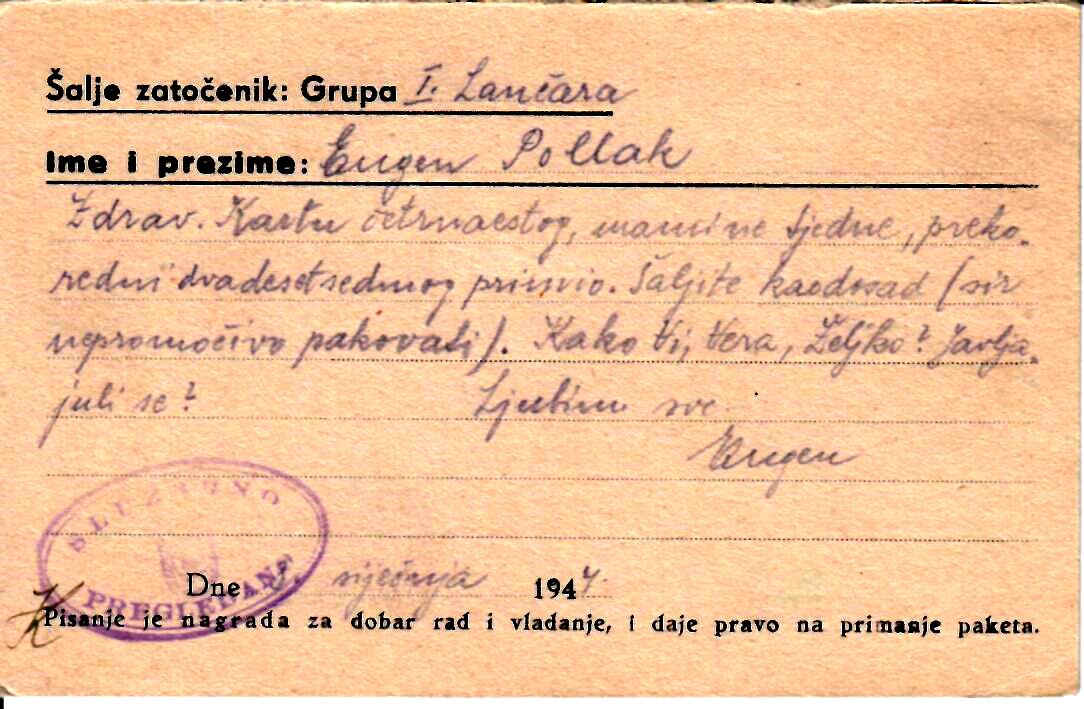 Šalje zatočenik: Grupa I. Lančara
Ime i prezime: Eugen Pollak
Zdrav. Kartu četrnaestog, mamine sjedne, preko-
redni dvadesetsedmog primio. Šaljite kaodosad (sir
nepromočivo pakovati). Kako Vi, Vera, Željko? Javlja-
juli se? Ljubim sve
Eugen
SLUŽBENO
PREGLEDANO
Dne siječnja 1944.
Pisanje je nagrada za dobar rad i vladanje, i daje pravo na primanje paketa.
K